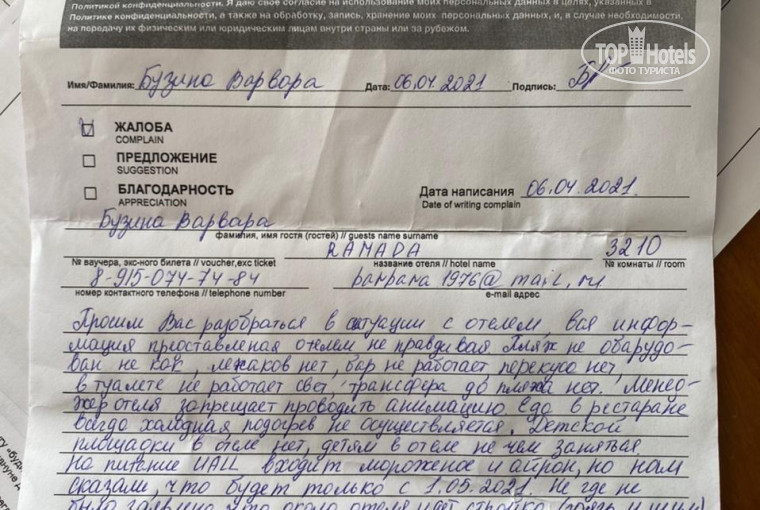 Политикой конфиденциальности. Я даю свое согласие на использование моих персональных данных в целях, указанных в
Политике конфиденциальности, а также на обработку, запись, хранение моих персональных данных, и, в случае необходимости,
на передачу их физическим или юридическим лицам внутри страны или за рубежом.
TOPHotels
ФОТО ТУРИСТА
Имя/Фамилия: Бузина Варвора Дата: 06.04.2021 Подпись:
ЖАЛОБА
COMPLAIN
ПРЕДЛОЖЕНИЕ
SUGGESTION
БЛАГОДАРНОСТЬ
APPRECIATION
Дата написания 06.04.2021.
Date of writing complain
Бузина Варвара
фамилия, имя гостя (гостей) // guests name surname
RAMADA 3210
№ ваучера, экс-ного билета // voucher,exc ticket название отеля // hotel name № комнаты // room
8-915-074-74-84 parpara1976@mail.ru
номер контактного телефона // telephone number e-mail адрес
Просим Вас разобраться в ситуации с отелем, вся инфор-
мация предоставленая отелем не правдивая. Пляж не обарудо-
ван не как, лежаков нет, бар не работает перекуса нет,
в туалете не работает свет, трансфера до пляжа нет. Менед-
жер отеля запрещает проводить анимацию. Еда в рестаране
всегда холодная подогрев не осуществляется. Детской
площадки в отеле нет, детям в отеле не чем заняться.
На питание UALL входит мороженое и айрон, но нам
сказали, что будет только с 1.05.2021. Не где не
было заявлено что около отеля идет стройка